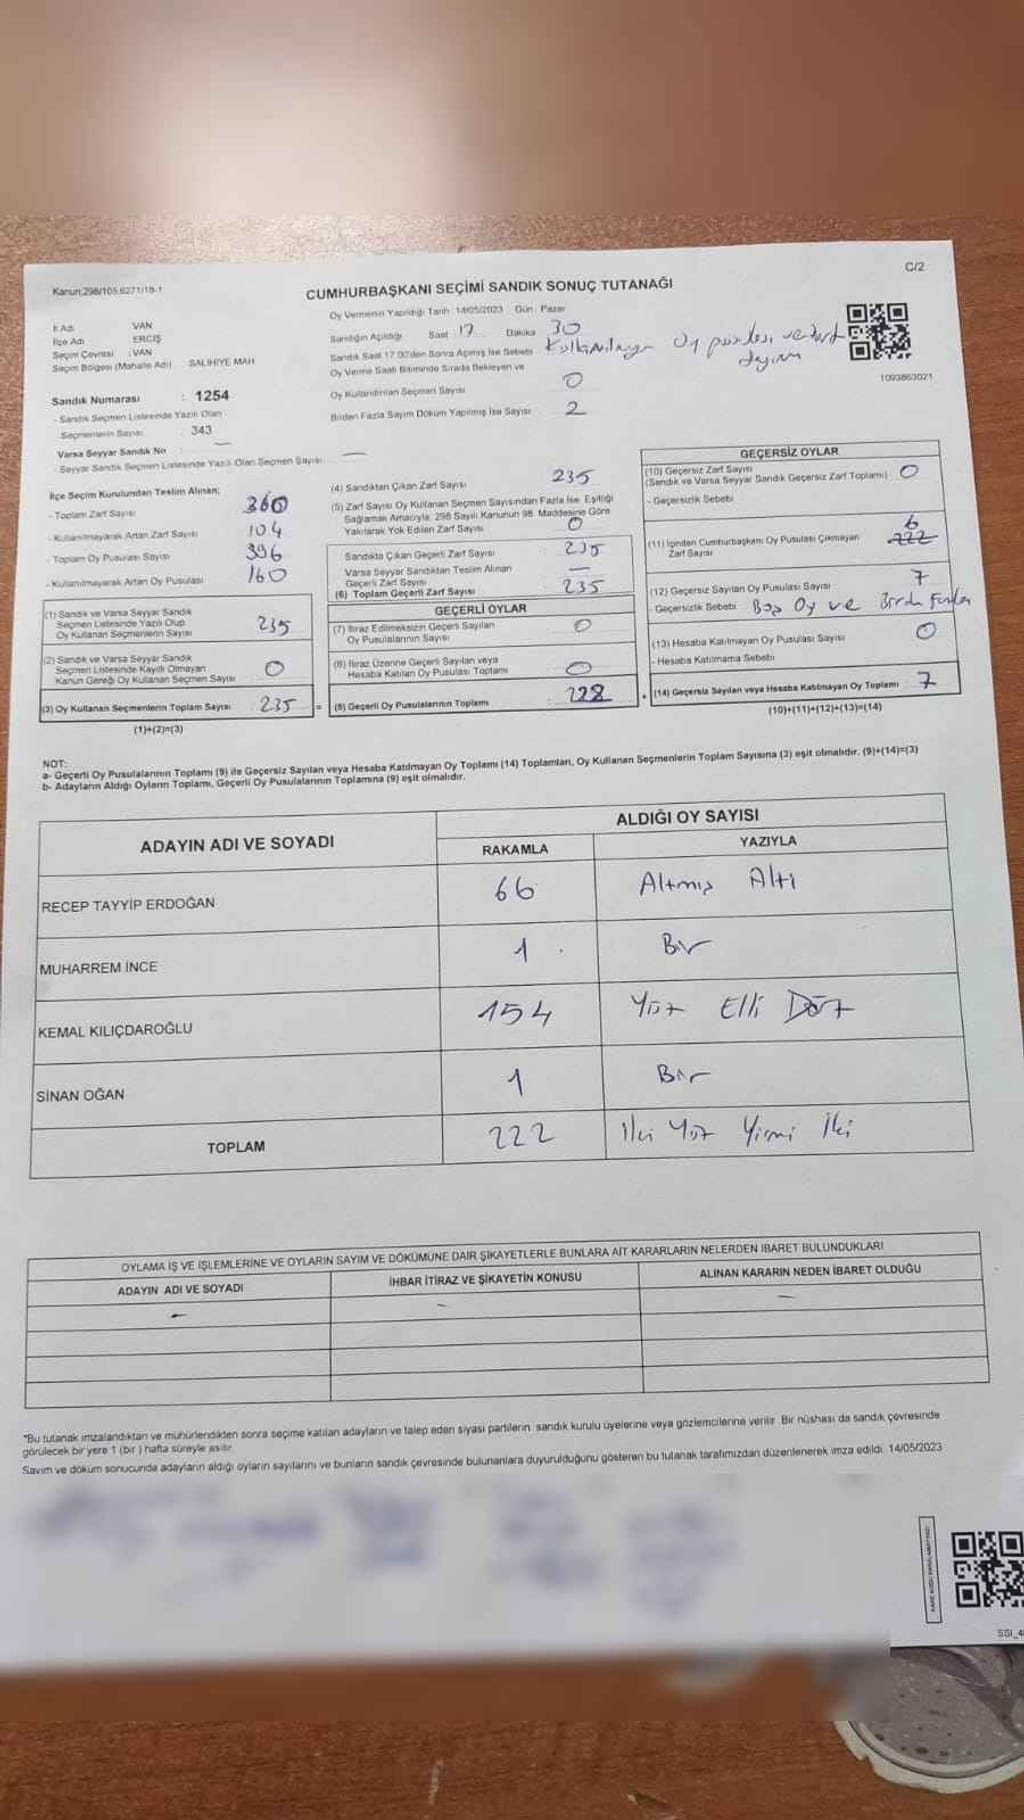 C/2
Kanun:298/105,6271/18-1
CUMHURBAŞKANI SEÇİMİ SANDIK SONUÇ TUTANAĞI
Oy Vermenin Yapıldığı Tarih 14/05/2023 Gün: Pazar
İl Adı VAN
İlçe Adı ERCİŞ
Seçim Çevresi : VAN
Seçim Bölgesi (Mahalle Adı) SALİHİYE MAH
Sandık Numarası : 1254
- Sandık Seçmen Listesinde Yazılı Olan
Seçmenlerin Sayısı : 343
Varsa Seyyar Sandık No —
- Seyyar Sandık Seçmen Listesinde Yazılı Olan Seçmen Sayısı —
Sandığın Açıldığı Saat 17 Dakika 30
Sandık Saat 17.00'den Sonra Açılmış İse Sebebi Kullanılmayan Oy pusulası ve zarf sayımı
Oy Verme Saati Bitiminde Sırada Bekleyen ve
Oy Kullandırılan Seçmen Sayısı 0
Birden Fazla Sayım Döküm Yapılmış İse Sayısı 2
1093863021
İlçe Seçim Kurulundan Teslim Alınan:
- Toplam Zarf Sayısı 360
- Kullanılmayarak Artan Zarf Sayısı 104
- Toplam Oy Pusulası Sayısı 396
- Kullanılmayarak Artan Oy Pusulası 160
(1) Sandık ve Varsa Seyyar Sandık
Seçmen Listesinde Yazılı Olup
Oy Kullanan Seçmenlerin Sayısı 235
(2) Sandık ve Varsa Seyyar Sandık
Seçmen Listesinde Kayıtlı Olmayan
Kanun Gereği Oy Kullanan Seçmen Sayısı 0
(3) Oy Kullanan Seçmenlerin Toplam Sayısı 235 =
(1)+(2)=(3)
(4) Sandıktan Çıkan Zarf Sayısı 235
(5) Zarf Sayısı Oy Kullanan Seçmen Sayısından Fazla İse, Eşitliği
Sağlamak Amacıyla, 298 Sayılı Kanunun 98. Maddesine Göre
Yakılarak Yok Edilen Zarf Sayısı 0
Sandıkta Çıkan Geçerli Zarf Sayısı : 235
Varsa Seyyar Sandıktan Teslim Alınan
Geçerli Zarf Sayısı —
(6) Toplam Geçerli Zarf Sayısı : 235
GEÇERLİ OYLAR
(7) İtiraz Edilmeksizin Geçerli Sayılan
Oy Pusulalarının Sayısı : 0
(8) İtiraz Üzerine Geçerli Sayılan veya
Hesaba Katılan Oy Pusulası Toplamı 0
(9) Geçerli Oy Pusulalarının Toplamı : 228 +
GEÇERSİZ OYLAR
(10) Geçersiz Zarf Sayısı
(Sandık ve Varsa Seyyar Sandık Geçersiz Zarf Toplamı) 0
- Geçersizlik Sebebi
(11) İçinden Cumhurbaşkanı Oy Pusulası Çıkmayan
Zarf Sayısı 6 222
(12) Geçersiz Sayılan Oy Pusulası Sayısı 7
- Geçersizlik Sebebi Boş Oy ve Birden Fazla
(13) Hesaba Katılmayan Oy Pusulası Sayısı 0
- Hesaba Katılmama Sebebi
(14) Geçersiz Sayılan veya Hesaba Katılmayan Oy Toplamı 7
(10)+(11)+(12)+(13)=(14)
NOT:
a- Geçerli Oy Pusulalarının Toplamı (9) ile Geçersiz Sayılan veya Hesaba Katılmayan Oy Toplamı (14) Toplamları, Oy Kullanan Seçmenlerin Toplam Sayısına (3) eşit olmalıdır. (9)+(14)=(3)
b- Adayların Aldığı Oyların Toplamı, Geçerli Oy Pusulalarının Toplamına (9) eşit olmalıdır.
ADAYIN ADI VE SOYADI
ALDIĞI OY SAYISI
RAKAMLA YAZIYLA
RECEP TAYYİP ERDOĞAN 66 Altmış Altı
MUHARREM İNCE 1 Bir
KEMAL KILIÇDAROĞLU 154 Yüz Elli Dört
SİNAN OĞAN 1 Bir
TOPLAM 222 İki Yüz Yirmi İki
OYLAMA İŞ VE İŞLEMLERİNE VE OYLARIN SAYIM VE DÖKÜMÜNE DAİR ŞİKAYETLERLE BUNLARA AİT KARARLARIN NELERDEN İBARET BULUNDUKLARI
ADAYIN ADI VE SOYADI İHBAR İTİRAZ VE ŞİKAYETİN KONUSU ALINAN KARARIN NEDEN İBARET OLDUĞU
— — —
*Bu tutanak imzalandıktan ve mühürlendikten sonra seçime katılan adayların ve talep eden siyasi partilerin sandık kurulu üyelerine veya gözlemcilerine verilir. Bir nüshası da sandık çevresinde
görülecek bir yere 1 (bir ) hafta süreyle asılır.
Sayım ve döküm sonucunda adayların aldığı oyların sayılarını ve bunların sandık çevresinde bulunanlara duyurulduğunu gösteren bu tutanak tarafımızdan düzenlenerek imza edildi. 14/05/2023